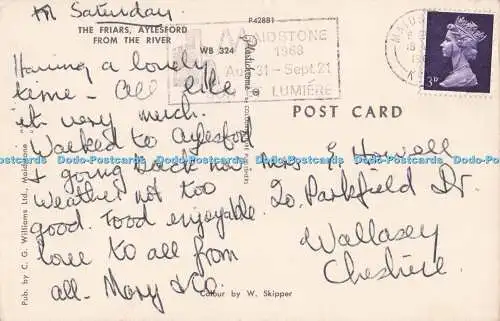 Saturday.
THE FRIARS, AYLESFORD
FROM THE RIVER
P42881
WB 324
MAIDSTONE
1968
Aug 31 - Sept. 21
LUMIÈRE
3D
Plastichrome ®
POST CARD
Having a lovely
time - All like
it very much.
Walked to Aylesford
& going back now
Weather not too
good. Food enjoyable
love to all from
all. Mary & Co.
Mrs Howell
20. Parkfield Dr.
Wallasey
Cheshire.
Pub. by C. G. Williams Ltd., Maidstone
Colour by W. Skipper
Dodo-Postcards Dodo-Postcards Dodo-Postcards Dodo-Postcards Dodo-Postcards Dodo-Postcards